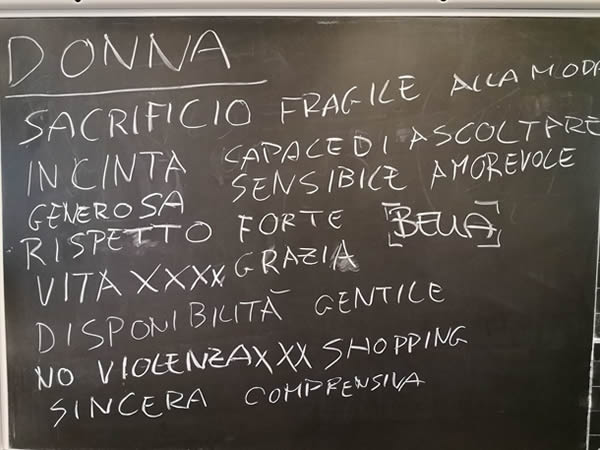 DONNA
SACRIFICIO FRAGILE ALLA MODA
INCINTA CAPACE DI ASCOLTARE
GENEROSA SENSIBILE AMOREVOLE
RISPETTO FORTE [BELLA]
VITA XXXX GRAZIA
DISPONIBILITÀ GENTILE
NO VIOLENZA XXX SHOPPING
SINCERA COMPRENSIVA